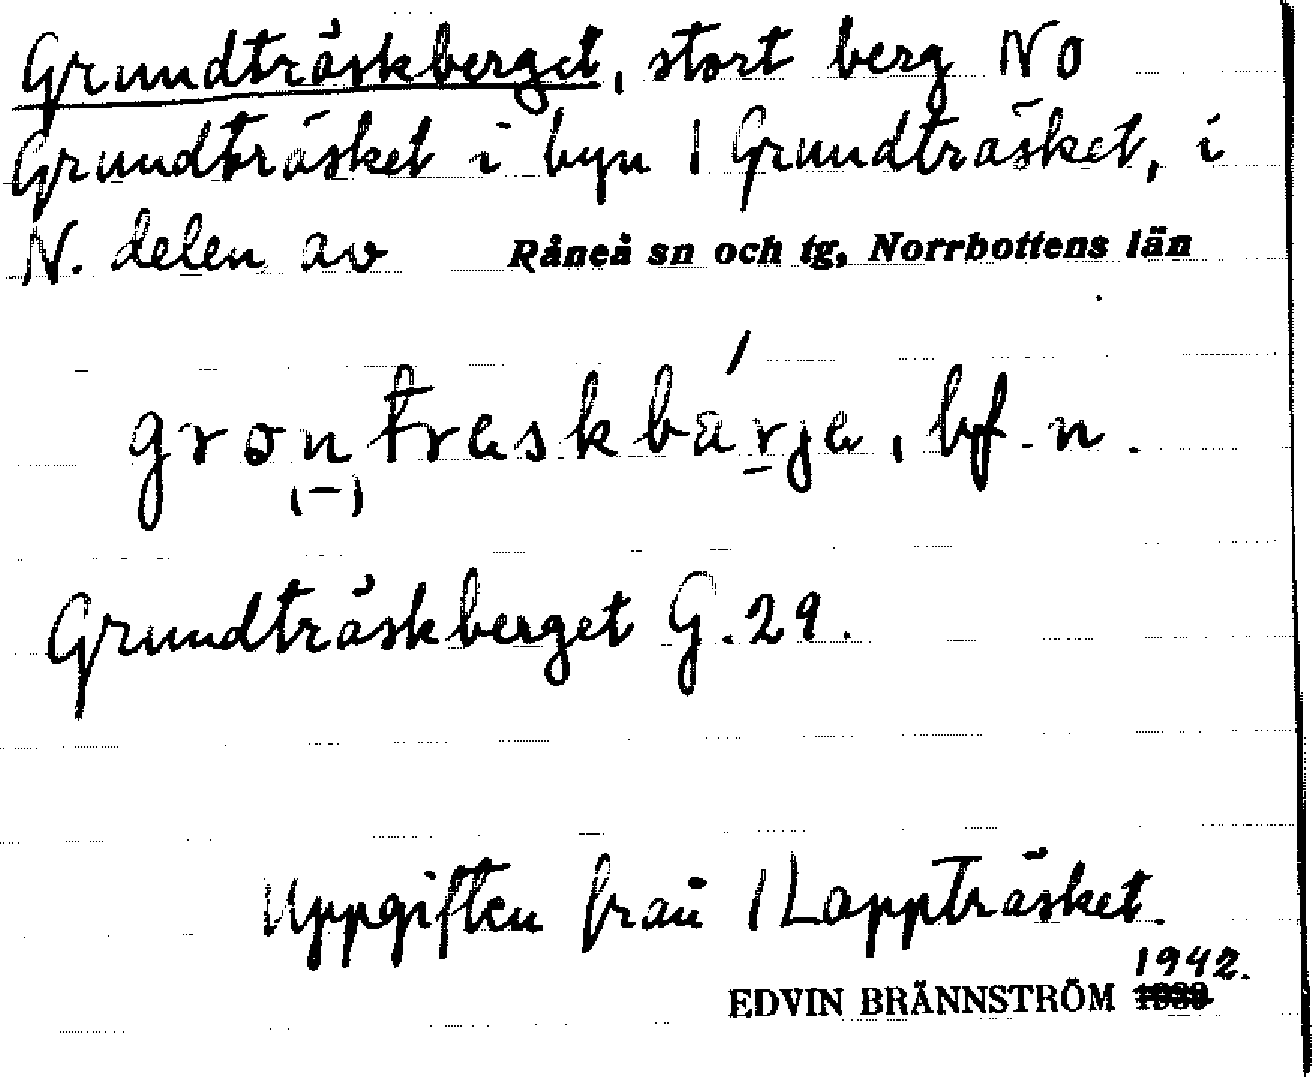 Grundträskberget, stort berg NO
Grundträsket i byn 1 Grundträsket, i
N. delen av Råneå sn och tg, Norrbottens län
gronträskbärje, bf. n.
(-)
Grundträskberget G. 29.
Uppgiften från 1 Lappträsket.
1942.
EDVIN BRÄNNSTRÖM